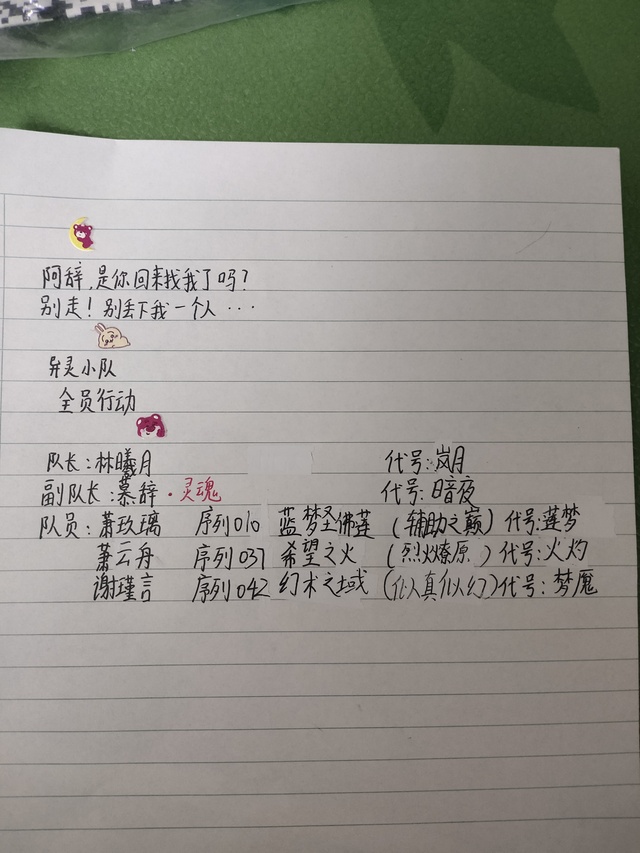 阿辞,是你回来找我了吗?
别走!别丢下我一个人···
异灵小队
全员行动
队长:林曦月 代号:岚月
副队长:慕辞·灵魂 代号:暗夜
队员:萧玖璃 序列010 蓝梦圣佛莲 (辅助之巅) 代号:莲梦
萧云舟 序列037 希望之火 (烈火燎原) 代号:火灼
谢瑾言 序列042 幻术之域 (似真似幻) 代号:梦魇